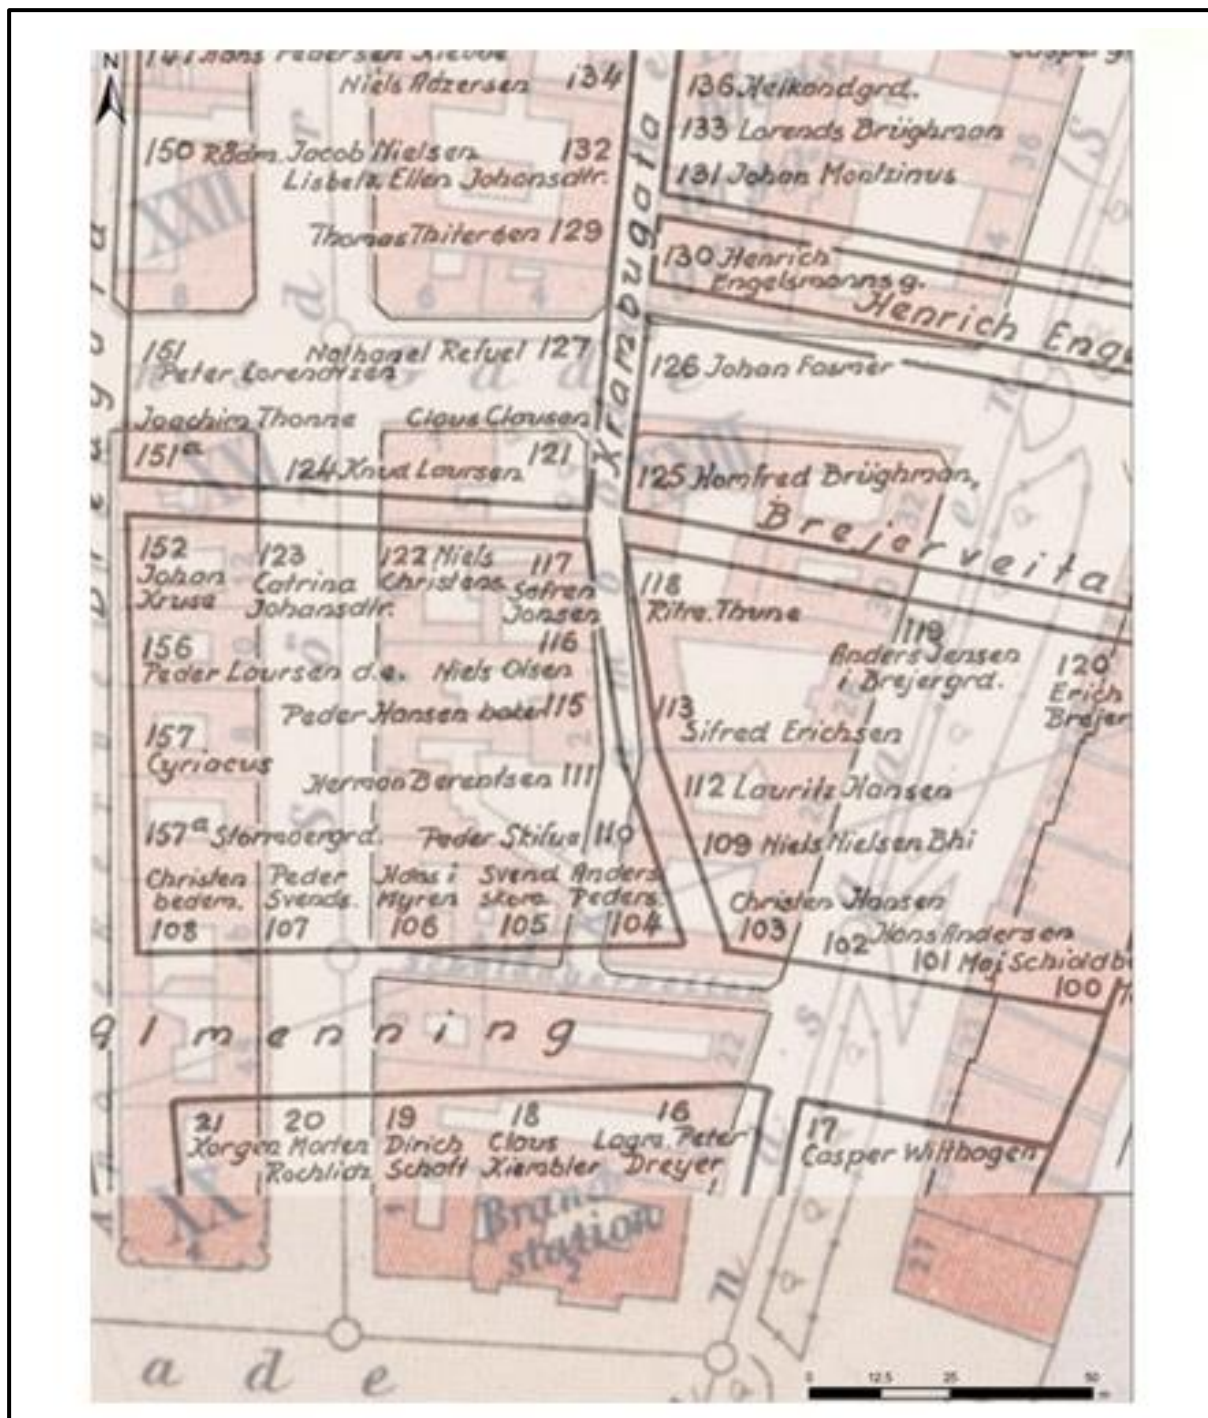 N
Niels Adzersen 134
136 Heikondgrd.
150 Rådm. Jacob Nielsen 132
133 Lorends Brüghman
Lisbeta Ellen Johansdtr.
131 Johan Montzinus
XXII
Thomas Thitersen 129
130 Henrich
Engelsmannsg.
8
6
4
Henrich Eng
Krambugata
151
Peter Lorendtzen
Nathanel Refuel 127
126 Johan Fasmer
Joachim Thonne
Claus Clausen
151a
124 Knud Laursen 121
125 Homfred Brüghman,
32
Brejerveita
152
Johan
Kruse
123
Catrina
Johansdtr.
122 Niels
Christens.
117
Sofren
Jonsen
118
Ritre. Thune
119
Anders Jensen
i Brejergrd.
120
Erich
Brejer
156
Peder Laursen d.e.
116
Niels Olsen
Peder Hansen baker 115
113
Sifred Erichsen
157
Cyriacus
Herman Berentsen 111
112 Lauritz Hansen
157a Stormoergrd.
Peder Skilue 110
109 Niels Nielsen Bhi
Christen
bedem.
108
Peder
Svends.
107
Hans i
Myren
106
Svend
skom.
105
Anders
Peders.
104
Christen Hansen
103
102 Hans Andersen
101 Maj Schioldb
100
almenning
22
21
Korgen
20
Morten
Rochlich
19
Dirich
Schoft
18
Claus
Kiembler
16
Lagm. Peter
Dreyer
17
Casper Witthagen
XX
4
1
Brand-
station
2
27
ade
0 12,5 25 50
m